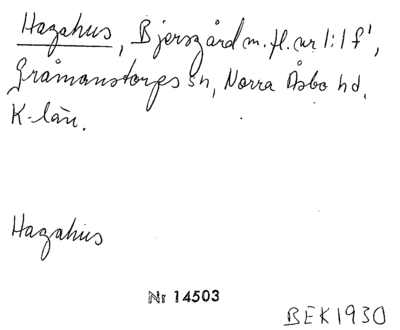 Hagahus, Bjersgård m.fl. nr 1:1 f¹,
Gråmanstorps sn, Norra Åsbo hd.
K-län.
Hagahus
Nr 14503
BEK1930